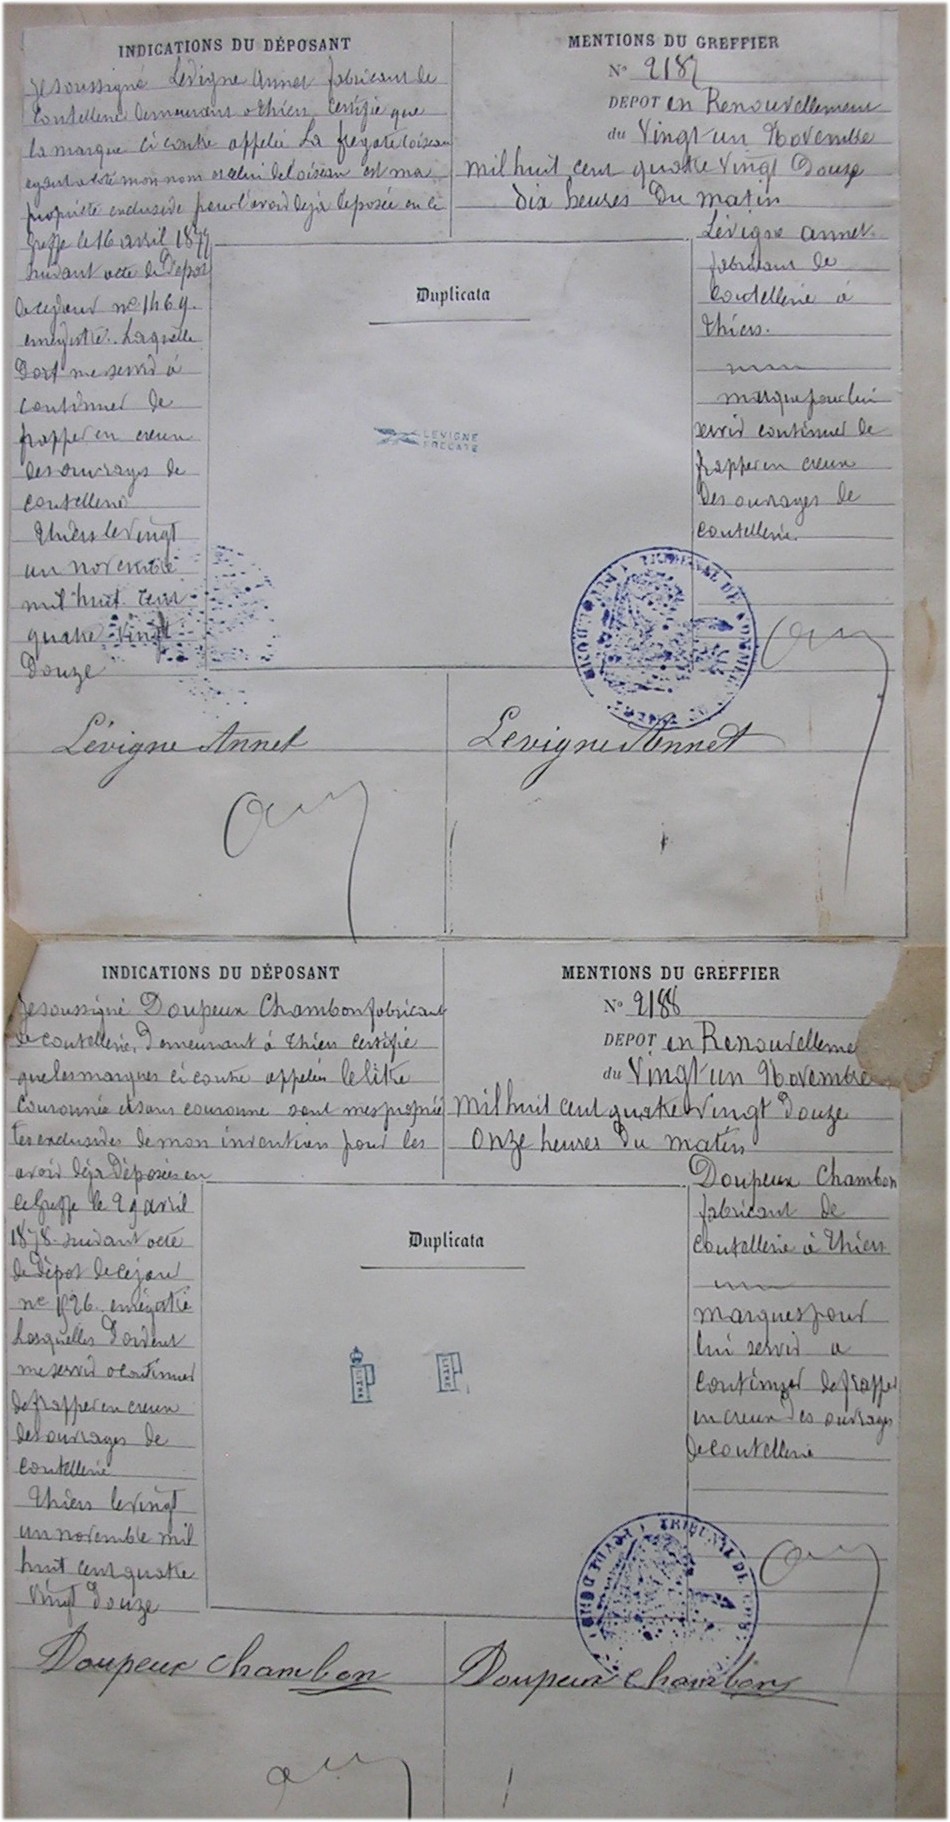 INDICATIONS DU DÉPOSANT
Je soussigné Lévigne Annet fabricant de
Coutellerie demeurant à Thiers, certifie que
la marque ci contre appelée La frégate (oiseau
ayant à côté mon nom et celui de l'oiseau est ma
propriété exclusive pour l'avoir déjà déposée en ce
Greffe le 16 avril 1877
suivant acte de Dépot
de ce jour no 1469.
enregistré. Laquelle
Doit me servir à
continuer de
frapper en creux
des ouvrages de
coutellerie
Thiers le vingt
un novembre
mil huit cent
quatre vingt
Douze
MENTIONS DU GREFFIER
No 2187
DÉPOT en Renouvellement
du Vingt un Novembre
Mil huit cent quatre vingt Douze
dix heures du matin
Lévigne Annet
fabricant de
Coutellerie à
Thiers.
marque pour lui
servir continuer de
frapper en creux
Des ouvrages de
Coutellerie.
Duplicata
LEVIGNE
Lévigne Annet
Lévigne Annet
INDICATIONS DU DÉPOSANT
Je soussigné Doupeux Chambon fabricant
de coutellerie, Demeurant à Thiers certifie
que les marques ci contre appelées le litre
Couronnée et sans couronne sont mes proprié
tés exclusives de mon invention pour les
avoir déjà Déposées en
ce Greffe le 29 avril
1878 suivant acte
de Dépot de ce jour
no 1926 enregistré
Lesquelles Doivent
me servir à continuer
de frapper en creux
des ouvrages de
coutellerie
Thiers le vingt
un novembre mil
huit cent quatre
vingt Douze
MENTIONS DU GREFFIER
No 2188
DÉPOT en Renouvelleme
du Vingt un Novembre
Mil huit cent quatre vingt Douze
Onze heures Du matin
Doupeux Chambon
fabricant de
Coutellerie à Thiers
marques pour
lui servir a
continuer de frapper
en creux des ouvrages
de coutellerie
Duplicata
LITRE
LITRE
TRIBUNAL DE
Doupeux Chambon
Doupeux Chambon